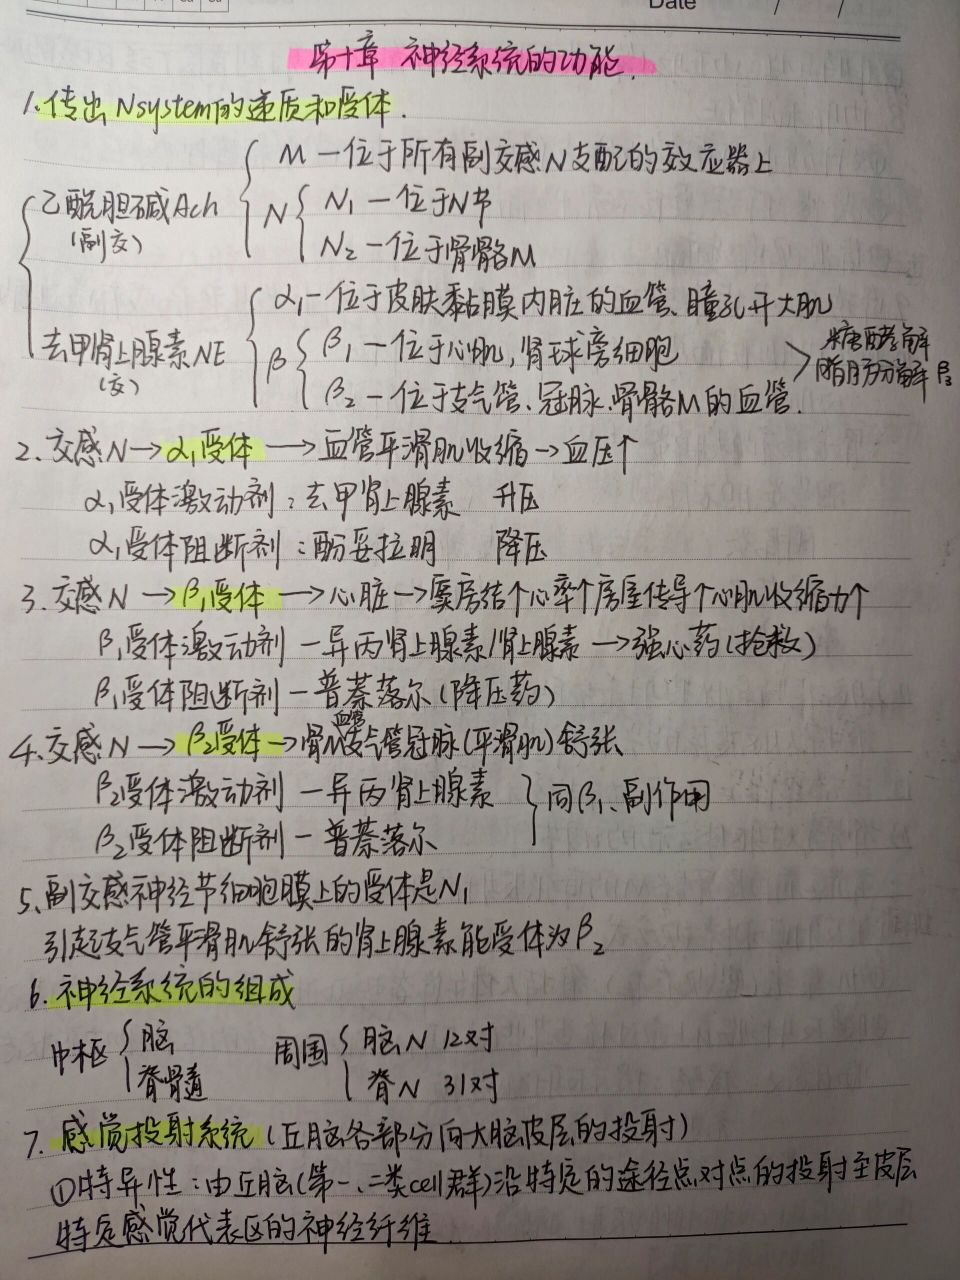 Date / /
第十章 神经系统的功能.
1.传出Nsystem的递质和受体.
M—位于所有副交感N支配的效应器上
乙酰胆碱Ach
(副交)
N
N₁—位于N节
N₂—位于骨骼M
α₁—位于皮肤黏膜内脏的血管、瞳孔开大肌
去甲肾上腺素NE
(交)
β
β₁—位于心肌,肾球旁细胞
β₂—位于支气管、冠脉、骨骼M的血管.
糖酵解
脂肪分解 β₃
2.交感N→α₁受体→血管平滑肌收缩→血压↑
α₁受体激动剂:去甲肾上腺素 升压
α₁受体阻断剂:酚妥拉明 降压
3.交感N→β₁受体→心脏→窦房结↑心率↑房室传导↑心肌收缩力↑
β₁受体激动剂—异丙肾上腺素/肾上腺素→强心药(抢救)
β₁受体阻断剂—普萘洛尔(降压药)
血管
4.交感N→β₂受体→骨M支气管冠脉(平滑肌)舒张
β₂受体激动剂—异丙肾上腺素
β₂受体阻断剂—普萘洛尔
同β₁、副作用
5.副交感神经节细胞膜上的受体是N₁
引起支气管平滑肌舒张的肾上腺素能受体为β₂
6.神经系统的组成
中枢
脑
脊骨髓
周围
脑N 12对
脊N 31对
7.感觉投射系统(丘脑各部分向大脑皮层的投射)
①特异性:由丘脑(第一、二类cell群)沿特定的途径点对点的投射至皮层
特定感觉代表区的神经纤维